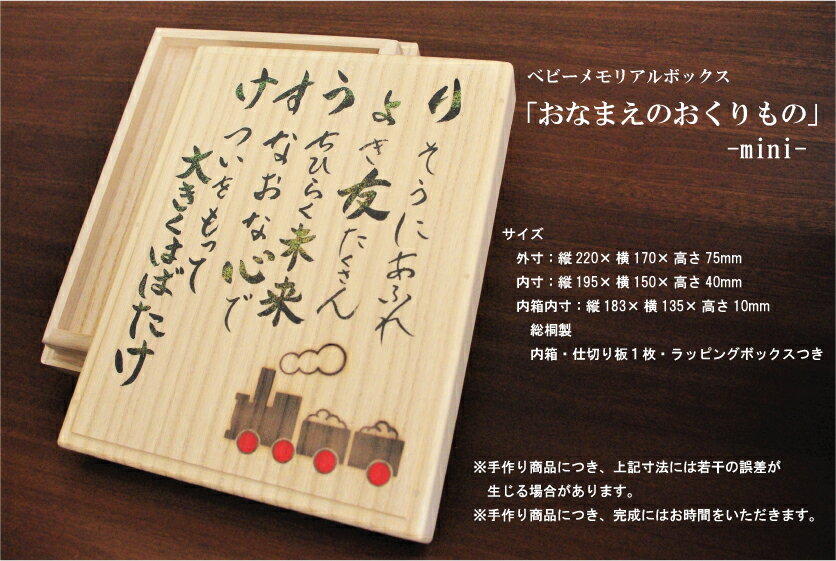 りそうにあふれ
よき友たくさん
うちひらく未来
すなおな心で
けついをもって
大きくはばたけ
ベビーメモリアルボックス
「おなまえのおくりもの」
-mini-
サイズ
外寸：縦220×横170×高さ75mm
内寸：縦195×横150×高さ40mm
内箱内寸：縦183×横135×高さ10mm
総桐製
内箱・仕切り板１枚・ラッピングボックスつき
※手作り商品につき、上記寸法には若干の誤差が
生じる場合があります。
※手作り商品につき、完成にはお時間をいただきます。